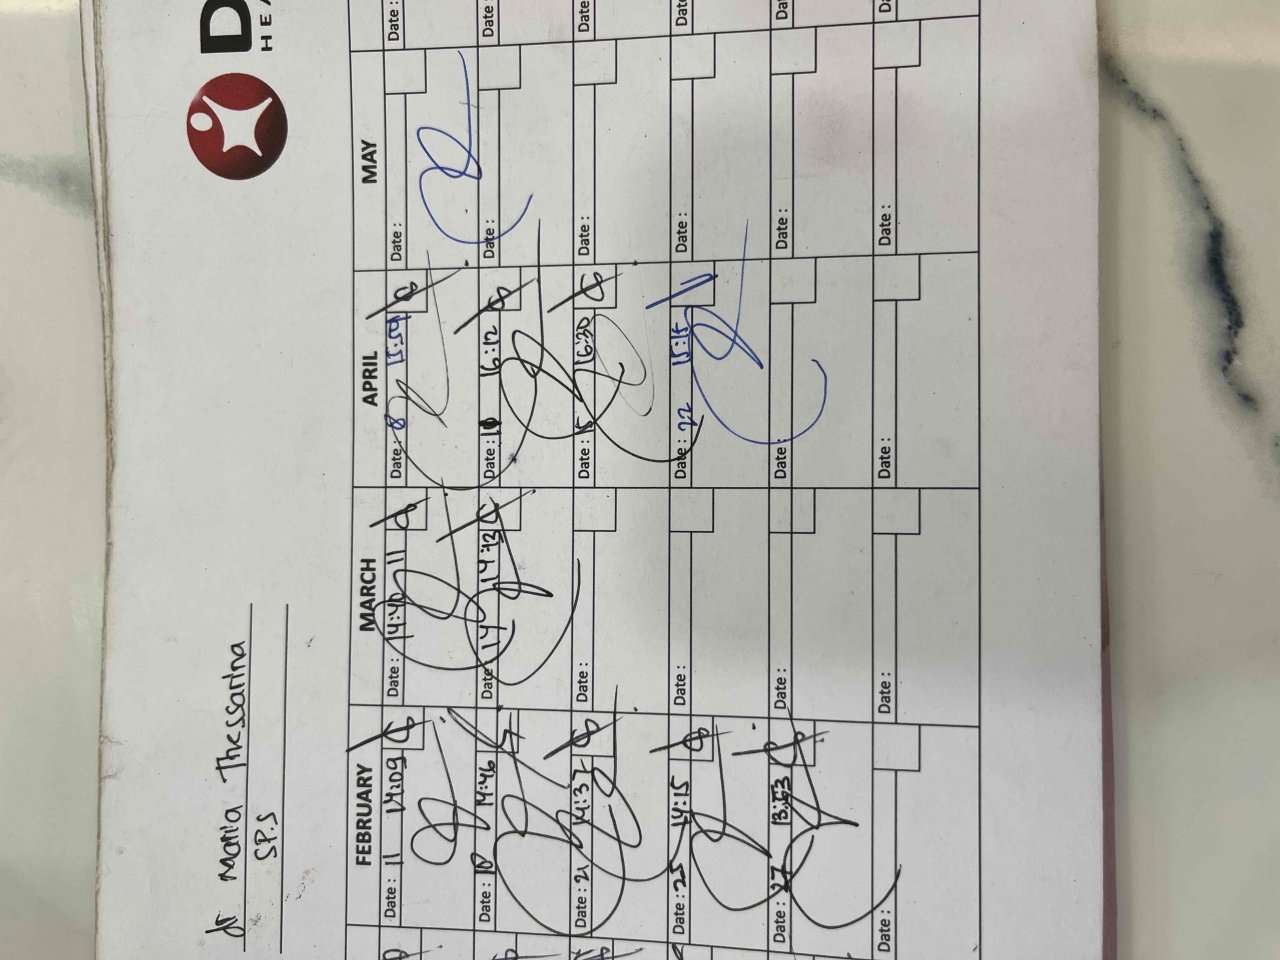 dr Maria Thessarina
SP.S
D
HEA
FEBRUARY MARCH APRIL MAY
Date : 11 14:09 Date : 14:40 11 Date : 8 15:59 Date : Date :
Date : 18 14:46 Date : 14 14:13 Date : 16:12 Date : Date :
Date : 21 14:37 Date : Date : 15 16:30 Date : Date :
Date : 25 14:15 Date : Date : 22 15:15 Date : Date
Date : 27 13:53 Date : Date : Date : Date :
Date : Date : Date : Date : Date :